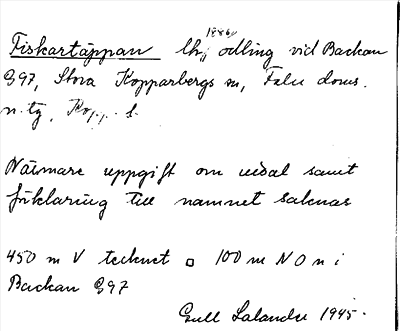 1886
Fiskartäppan lhr, odling vid Backan
G97, Stora Kopparbergs sn, Falu doms.
n. tg, Kopp. l.
Närmare uppgift om uedal samt
förklaring till namnet saknas
450 m V tecknet □ 100 m N O n i
Backan G97
Gull Salander 1945.